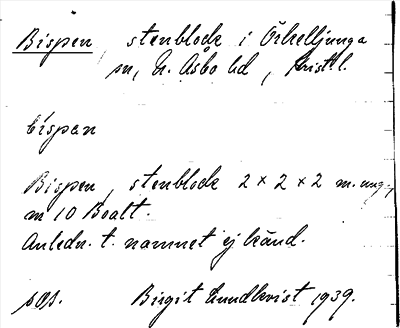 Bispen, stenblock i Örkelljunga
sn, N. Åsbo hd, Krist. l.
bispan
Bispen, stenblock 2 × 2 × 2 m. ung.,
m 10 Boalt.
Anledn. t. namnet ej känd.
Birgit Lundkvist 1939.